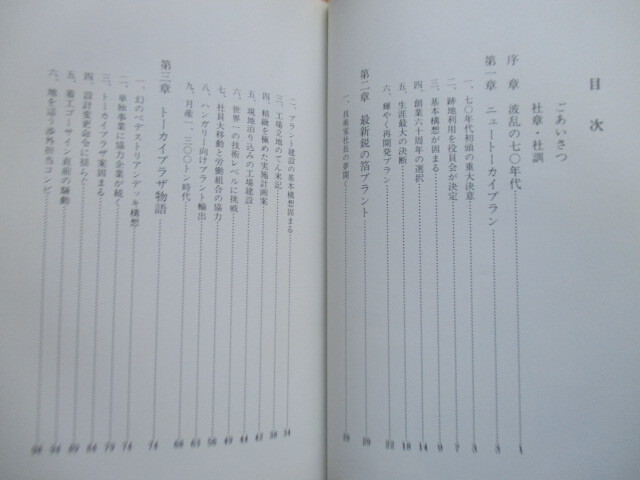 目次
ごあいさつ
社章・社訓
序章 波乱の七〇年代 1
第一章 ニュートーカイプラン 3
一、七〇年代初頭の重大決意 3
二、跡地利用を役員会が決定 7
三、基本構想が固まる 9
四、創業六十周年の選択 14
五、生涯最大の決断 18
六、輝やく再開発プラン 22
第二章 最新鋭の箔プラント 29
一、技術家社長の夢開く 29
二、プラント建設の基本構想固まる 34
三、工場立地のてん末記 38
四、精緻を極めた実施計画案 42
五、現地泊り込みの工場建設 44
六、世界一の技術レベルに挑戦 49
七、社員大移動と労働組合の協力 56
八、ハンガリー向けプラント輸出 63
九、月産一、三〇〇トン時代 68
第三章 トーカイプラザ物語 74
一、幻のペデストリアンデッキ構想 74
二、単独事業に協力企業が続く 79
三、トーカイプラザ案固まる
四、設計変更命令に揺らぐ
五、着工ゴーサイン直前の騒動
六、地を這う渉外担当コンビ